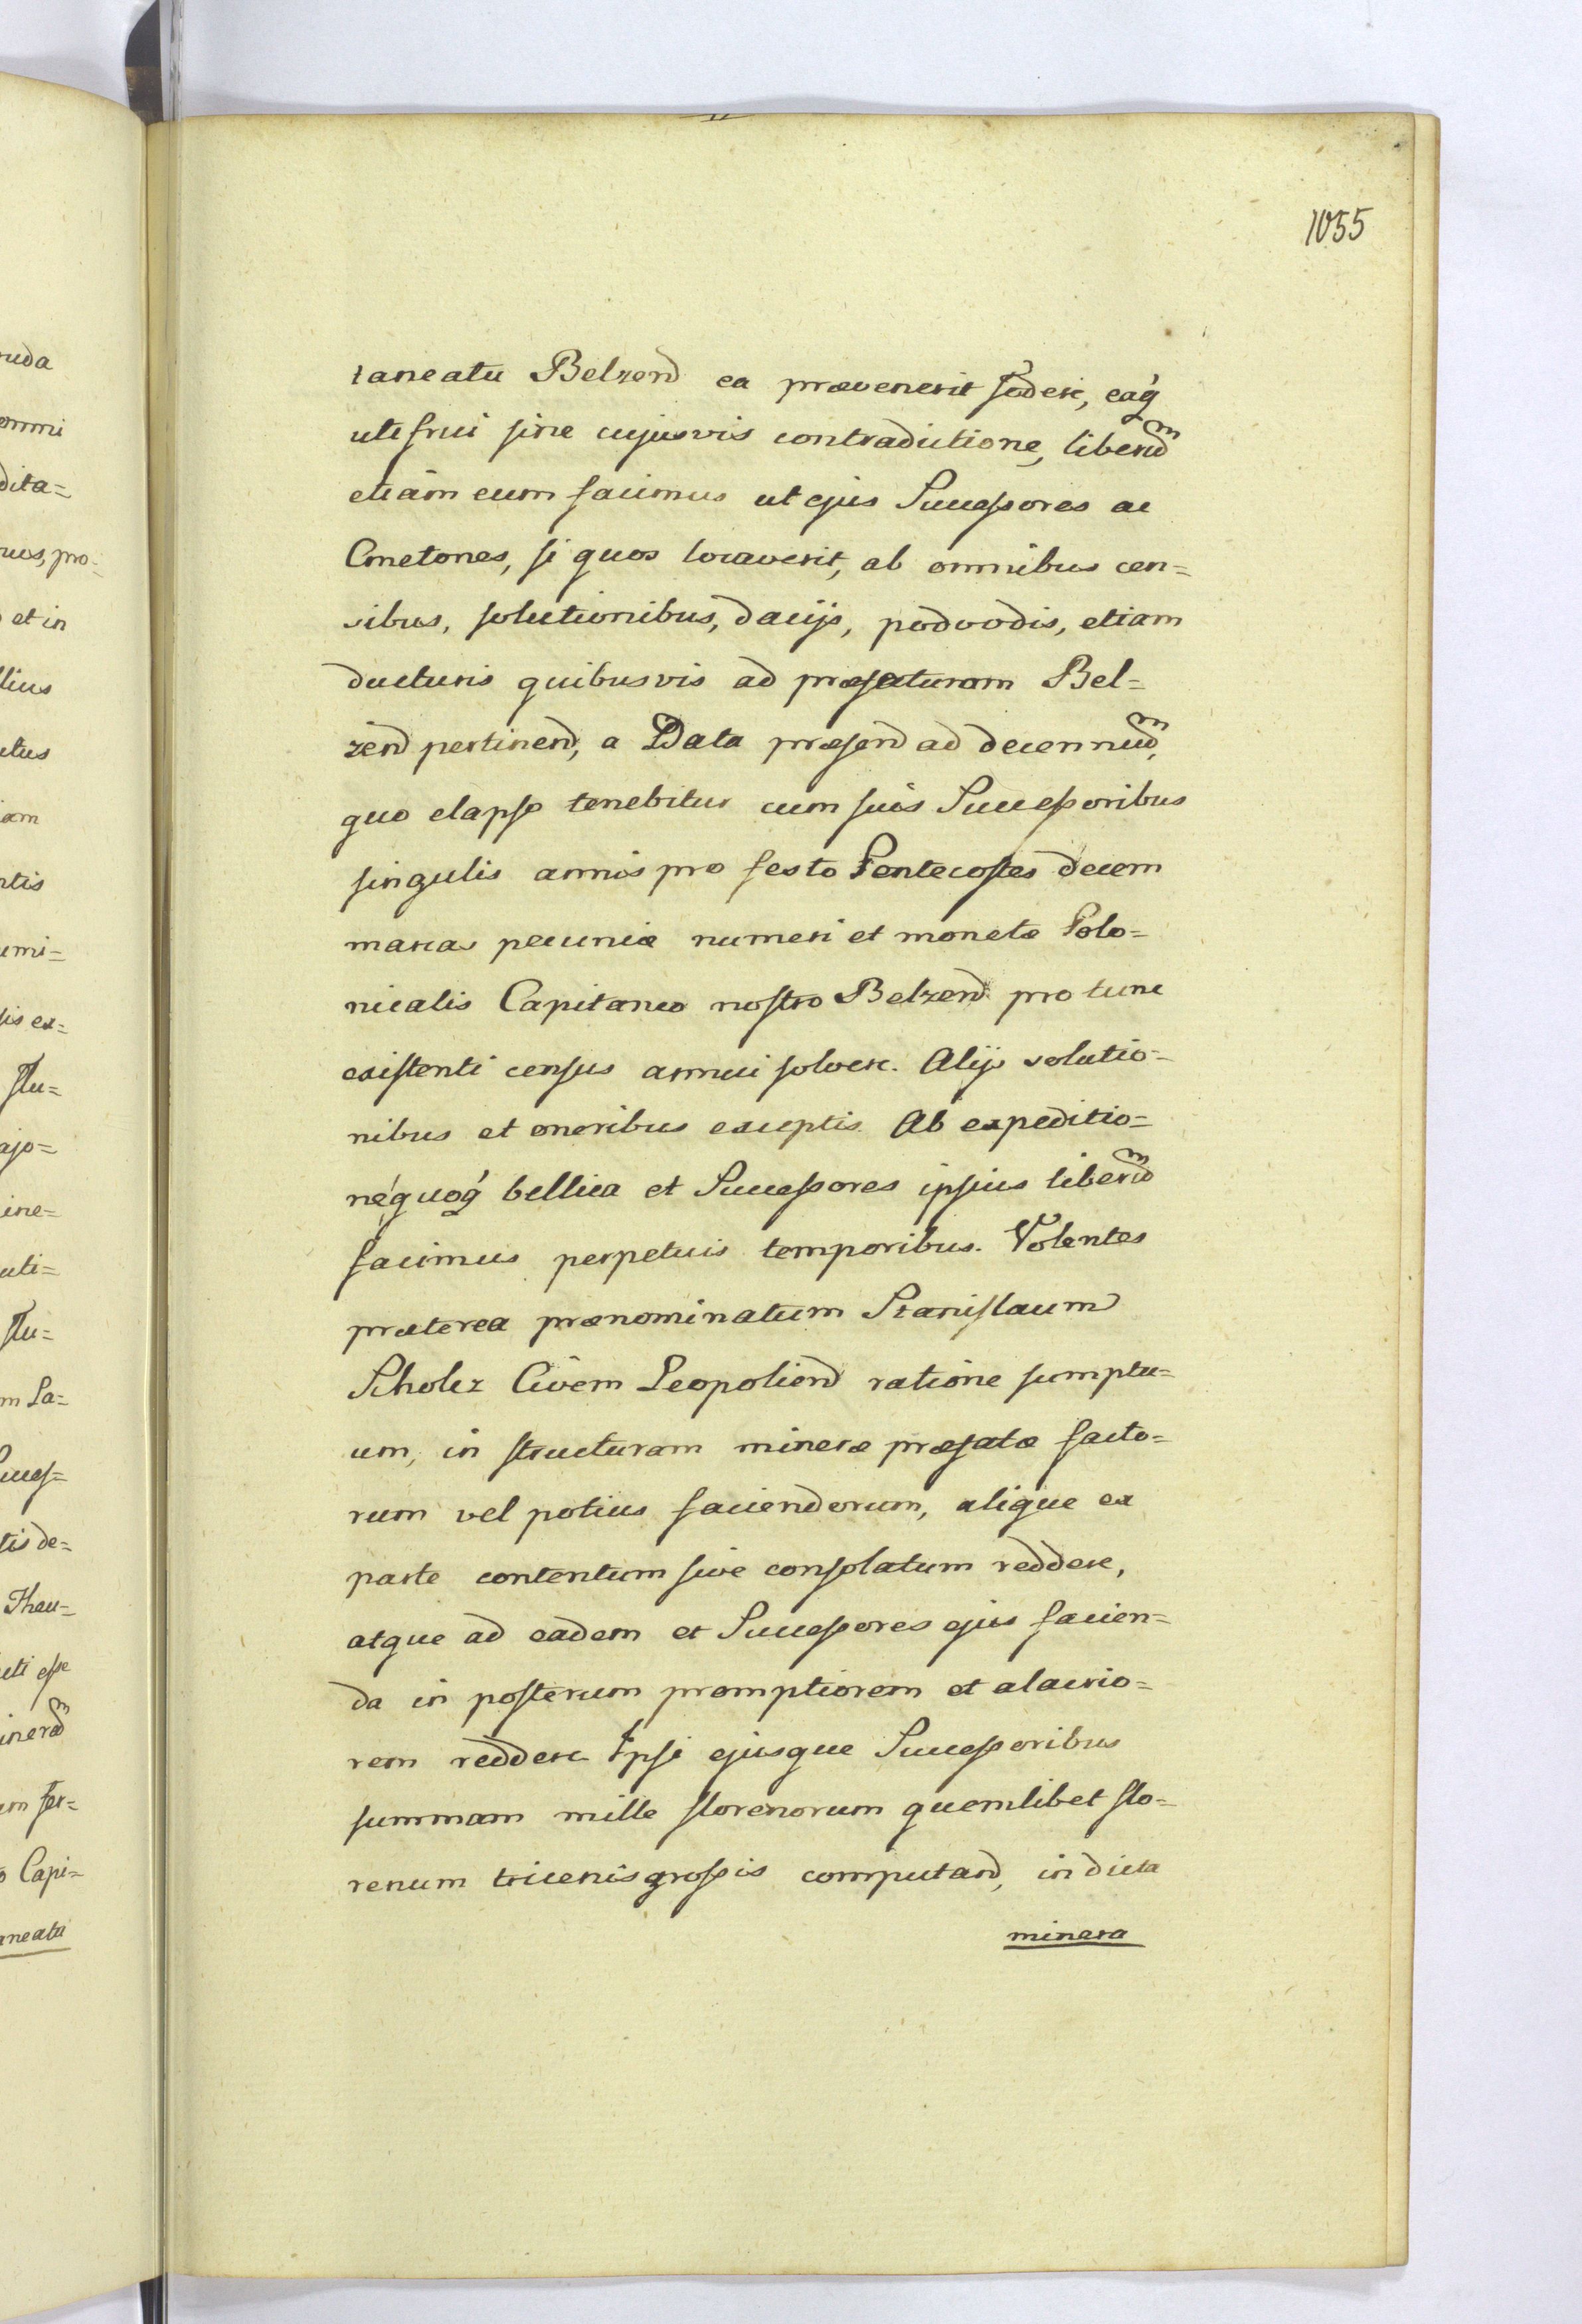 1055
taneatu Belzen͠ ea prævenerit fodere, eaq́
uti frui sine cujusvis contradictione, liberu͠m
etiam eum facimus ut ejus Successores ac
Cmetones, si quos locaverit, ab omnibus cen=
sibus, solutionibus, dacijs, podvodis, etiam
ducturis quibusvis ad præfecturam Bel=
zen͠ pertinen͠, a Data præsen͠ ad decenniu͠m,
quo elapso tenebitur cum suis Successoribus
singulis annis pro festo Pentecostes decem
marcas pecuniæ numeri et monetæ Polo=
nicalis Capitaneo nostro Belzen͠ pro tunc
existenti census annui solvere. Alijs solutio=
nibus et oneribus exceptis. Ab expeditio=
ne quoq́ bellica et Successores ipsius liberu͠m
facimus perpetuis temporibus. Volentes
præterea prænominatum Stanislaum
Scholcz Civem Leopolien͠ ratione sumptu=
um, in structuram mineræ præfatæ facto=
rum vel potius faciendorum, aliqua ex
parte contentum sive consolatum reddere,
atque ad eadem et Successores ejus facien=
da in posterum promptiorem et alacrio=
rem reddere Ipsi ejusque Successoribus
summam mille florenorum quemlibet flo=
renum tricenis grossis computan͠, in dicta
minera
ruda
ommi
dita=
nus, pro=
et in
llius
ctus
iam
ntis
umi=
sis ex=
flu=
ajo=
ine=
uti=
flu=
m La=
Succes=
tis de=
Theu=
uti esse
inera͠m
um fer=
o Capi=
aneatu